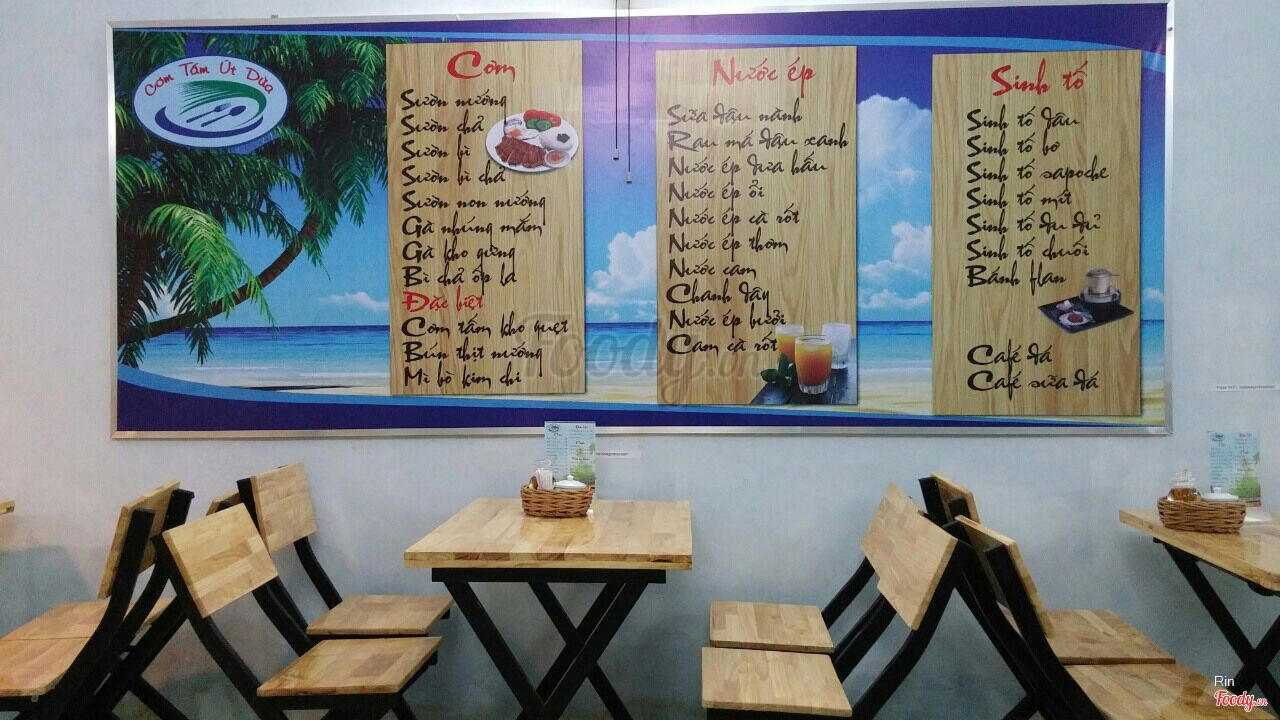 Cơm Tấm Út Dừa
Cơm
Sườn nướng
Sườn chả
Sườn bì
Sườn bì chả
Sườn non nướng
Gà nhúng mắm
Gà kho gừng
Bì chả ốp la
Đặc biệt
Cơm tấm kho quẹt
Bún thịt nướng
Mì bò kim chi
Nước ép
Sữa đậu nành
Rau má đậu xanh
Nước ép dưa hấu
Nước ép ổi
Nước ép cà rốt
Nước ép thơm
Nước cam
Chanh dây
Nước ép bưởi
Cam cà rốt
Sinh tố
Sinh tố dâu
Sinh tố bơ
Sinh tố sapoche
Sinh tố mít
Sinh tố đu đủ
Sinh tố chuối
Bánh flan
Café đá
Café sữa đá
Foody.vn
Rin
Foody.vn